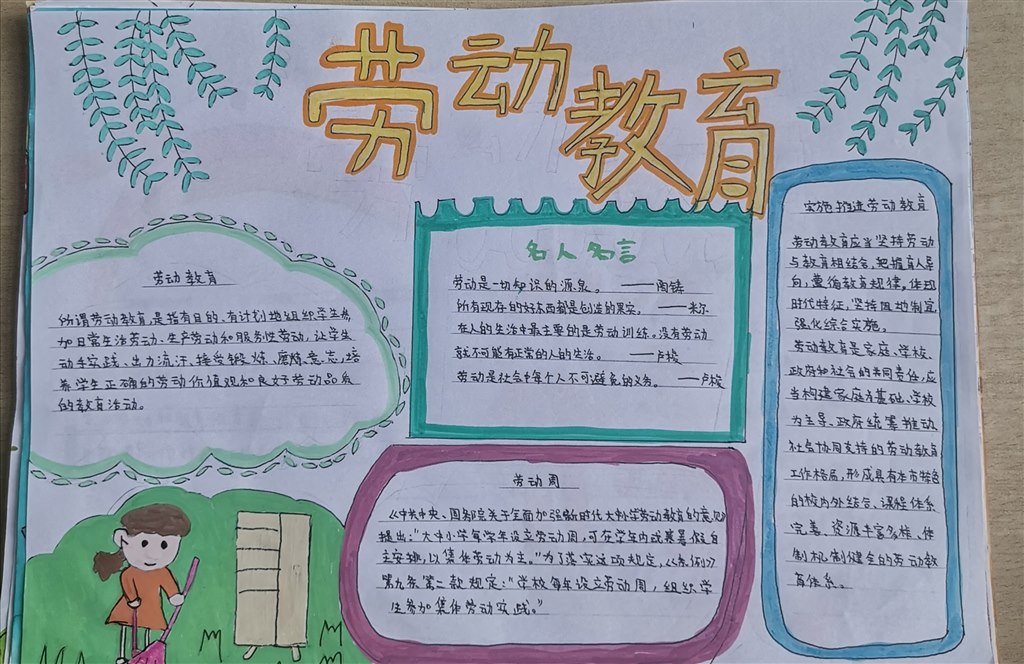 劳动教育
劳动教育
所谓劳动教育,是指有目的、有计划地组织学生参
加日常生活劳动、生产劳动和服务性劳动,让学生
动手实践、出力流汗、接受锻炼、磨炼意志,培
养学生正确的劳动价值观和良好劳动品质
的教育活动。
名人名言
劳动是一切知识的源泉。——陶铸
所有现存的好东西都是创造的果实。——米尔
在人的生活中最主要的是劳动训练。没有劳动
就不可能有正常的人的生活。——卢梭
劳动是社会中每个人不可避免的义务。——卢梭
劳动周
《中共中央、国务院关于全面加强新时代大中小学劳动教育的意见》
提出:“大中小学每学年设立劳动周,可在学年内或寒暑假自
主安排,以集体劳动为主。”为了落实这项规定,《条例》
第九条第二款规定:“学校每年设立劳动周,组织学
生参加集体劳动实践。”
实施推进劳动教育
劳动教育应当坚持劳动
与教育相结合,把握育人导
向,遵循教育规律,体现
时代特征,坚持因地制宜
强化综合实施。
劳动教育是家庭、学校、
政府和社会的共同责任,应
当构建家庭为基础、学校
为主导、政府统筹推动
社会协同支持的劳动教育
工作格局,形成具有本市特色
的校内外结合、课程体系
完善、资源丰富多样、体
制机制健全的劳动教
育体系。